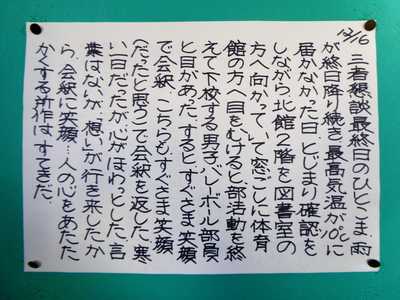 12/16
三者懇談最終日のひとこま。雨
が終日降り続き、最高気温が10℃に
届かなかった日。とじまり確認を
しながら、北館2階を図書室の
方へ向かっていて、窓ごしに体育
館の方へ目をむけると、部活動を終
えて下校する男子バレーボール部員
と目があった。するとすぐさま笑顔
で会釈。こちらもすぐさま笑顔
(だったと思う)で会釈を返した。寒
い日だったが心がほわっとした。言
葉はないが、「想い」が行き来したか
ら。会釈に笑顔…人の心をあたた
かくする所作は、すてきだ。